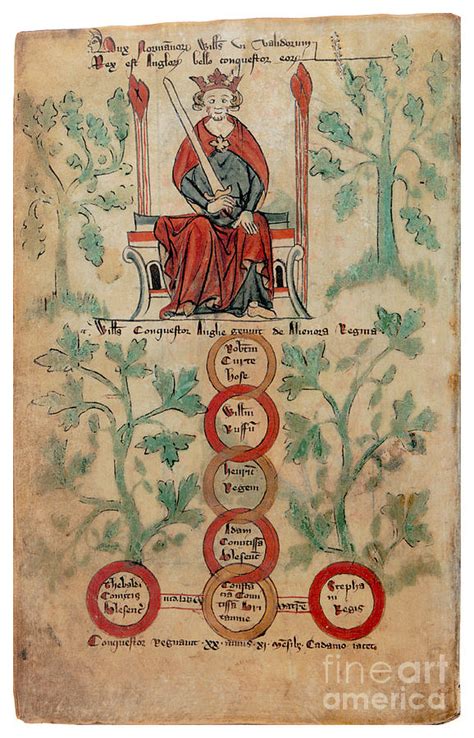 Dux Normannor Wills vi Validorum
Rex est Anglor bello conquestor eor
Wills Conquestor Anglie genuit de Alienora Regina
Robtm
Curte
hose
Willm
Ruffu
henric
Regem
Adam
Comitissa
blesenc
Thebaldi
Comitis
blesenc
Constā
cia Comi
tissa Bri
tannie
Stepha
ni
Regis
Conquestor Regnavit XX annis XI mensib Cadamo iacet
fineart
america